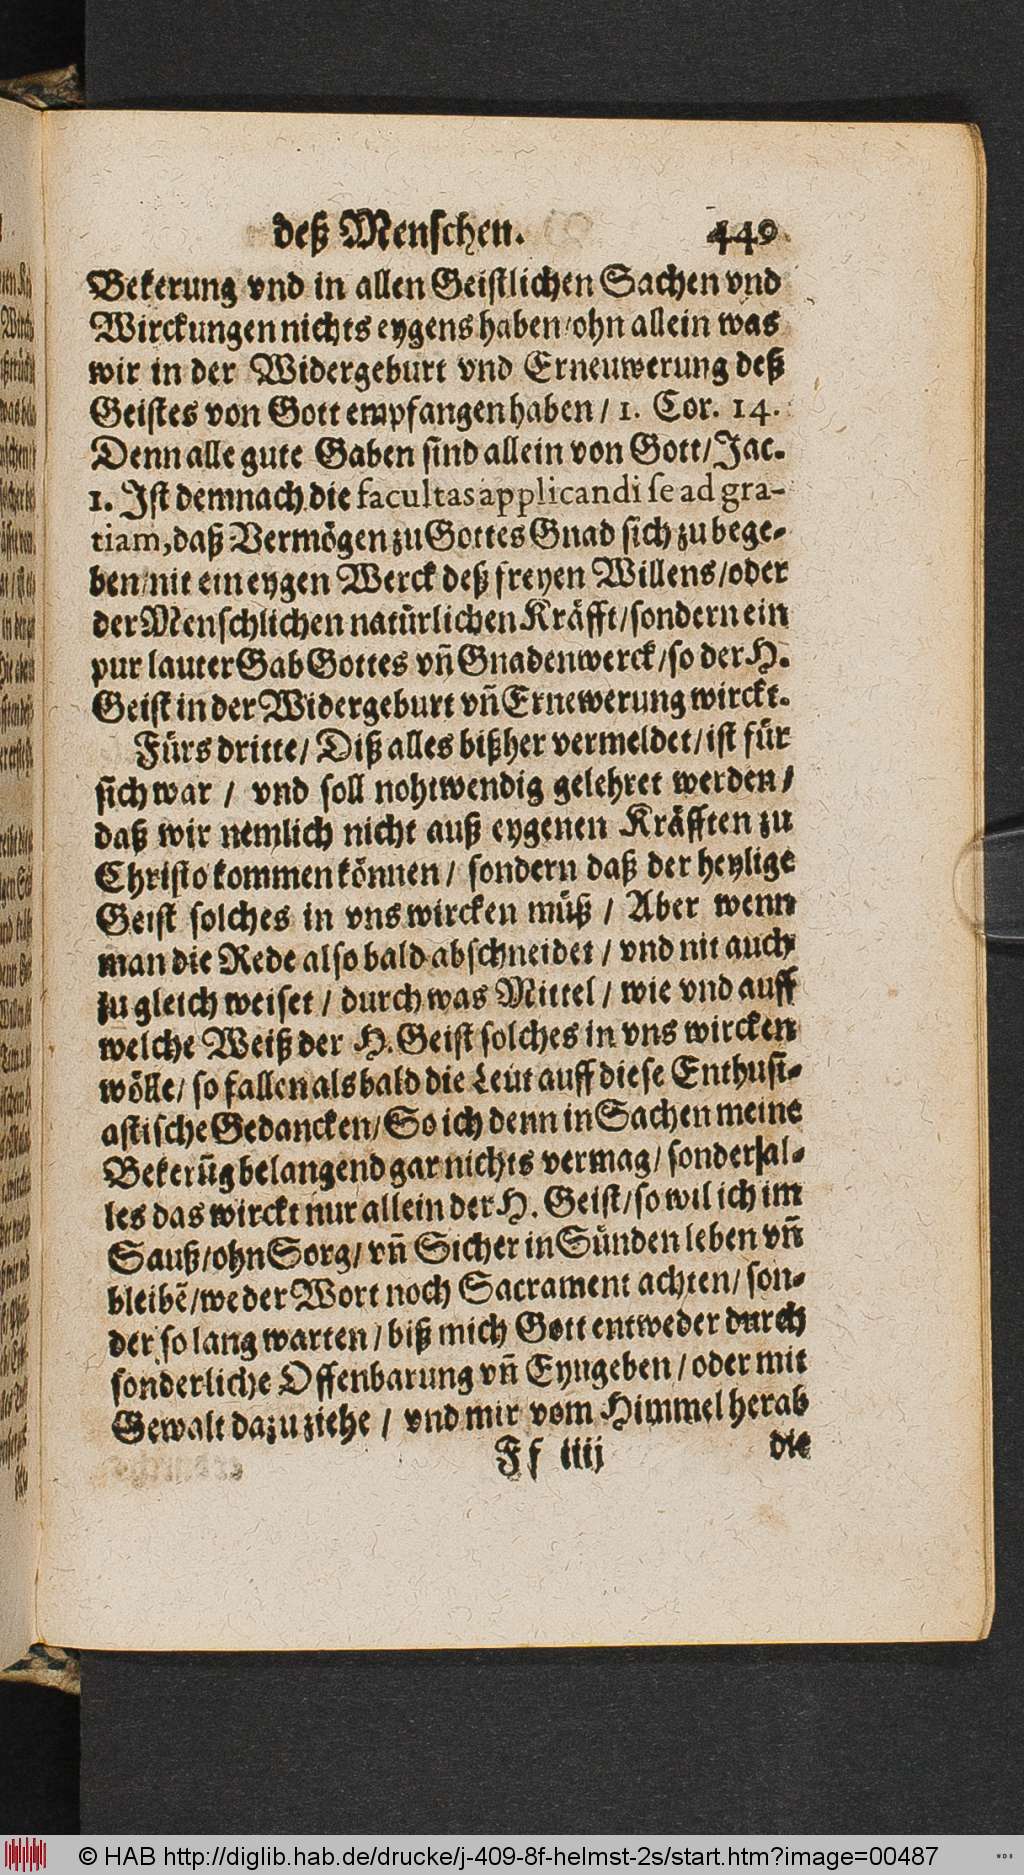 deß Menschen. 449
Bekerung vnd in allen Geistlichen Sachen vnd
Wirckungen nichts eygens haben/ohn allein was
wir in der Widergeburt vnd Erneuwerung deß
Geistes von Gott empfangen haben / 1. Cor. 14.
Denn alle gute Gaben sind allein von Gott/Jac.
1. Ist demnach die facultas applicandi se ad gra-
tiam, daß Vermögen zu Gottes Gnad sich zu bege-
ben/nit ein eygen Werck deß freyen Willens/oder
der Menschlichen natürlichen Kräfft/sondern ein
pur lauter Gab Gottes vñ Gnadenwerck/so der H.
Geist in der Widergeburt vñ Ernewerung wirckt.
Fürs dritte/ Diß alles bißher vermeldet/ist für
sich war / vnd soll nohtwendig gelehret werden/
daß wir nemlich nicht auß eygenen Kräfften zu
Christo kommen können / sondern daß der heylige
Geist solches in vns wircken müß / Aber wenn
man die Rede also bald abschneidet / vnd nit auch
zu gleich weiset / durch was Mittel / wie vnd auff
welche Weiß der H. Geist solches in vns wircken
wölle/ so fallen als bald die Leut auff diese Enthusi-
astische Gedancken/ So ich denn in Sachen meine
Bekerũg belangend gar nichts vermag/ sonder al-
les das wirckt nur allein der H. Geist/so wil ich im
Sauß/ohn Sorg/ vñ Sicher in Sünden leben vñ
bleibẽ/weder Wort noch Sacrament achten/ son-
der so lang warten / biß mich Gott entweder durch
sonderliche Offenbarung vñ Eyngeben / oder mit
Gewalt dazu ziehe / vnd mir vom Himmel herab
Ff iiij die
© HAB http://diglib.hab.de/drucke/j-409-8f-helmst-2s/start.htm?image=00487